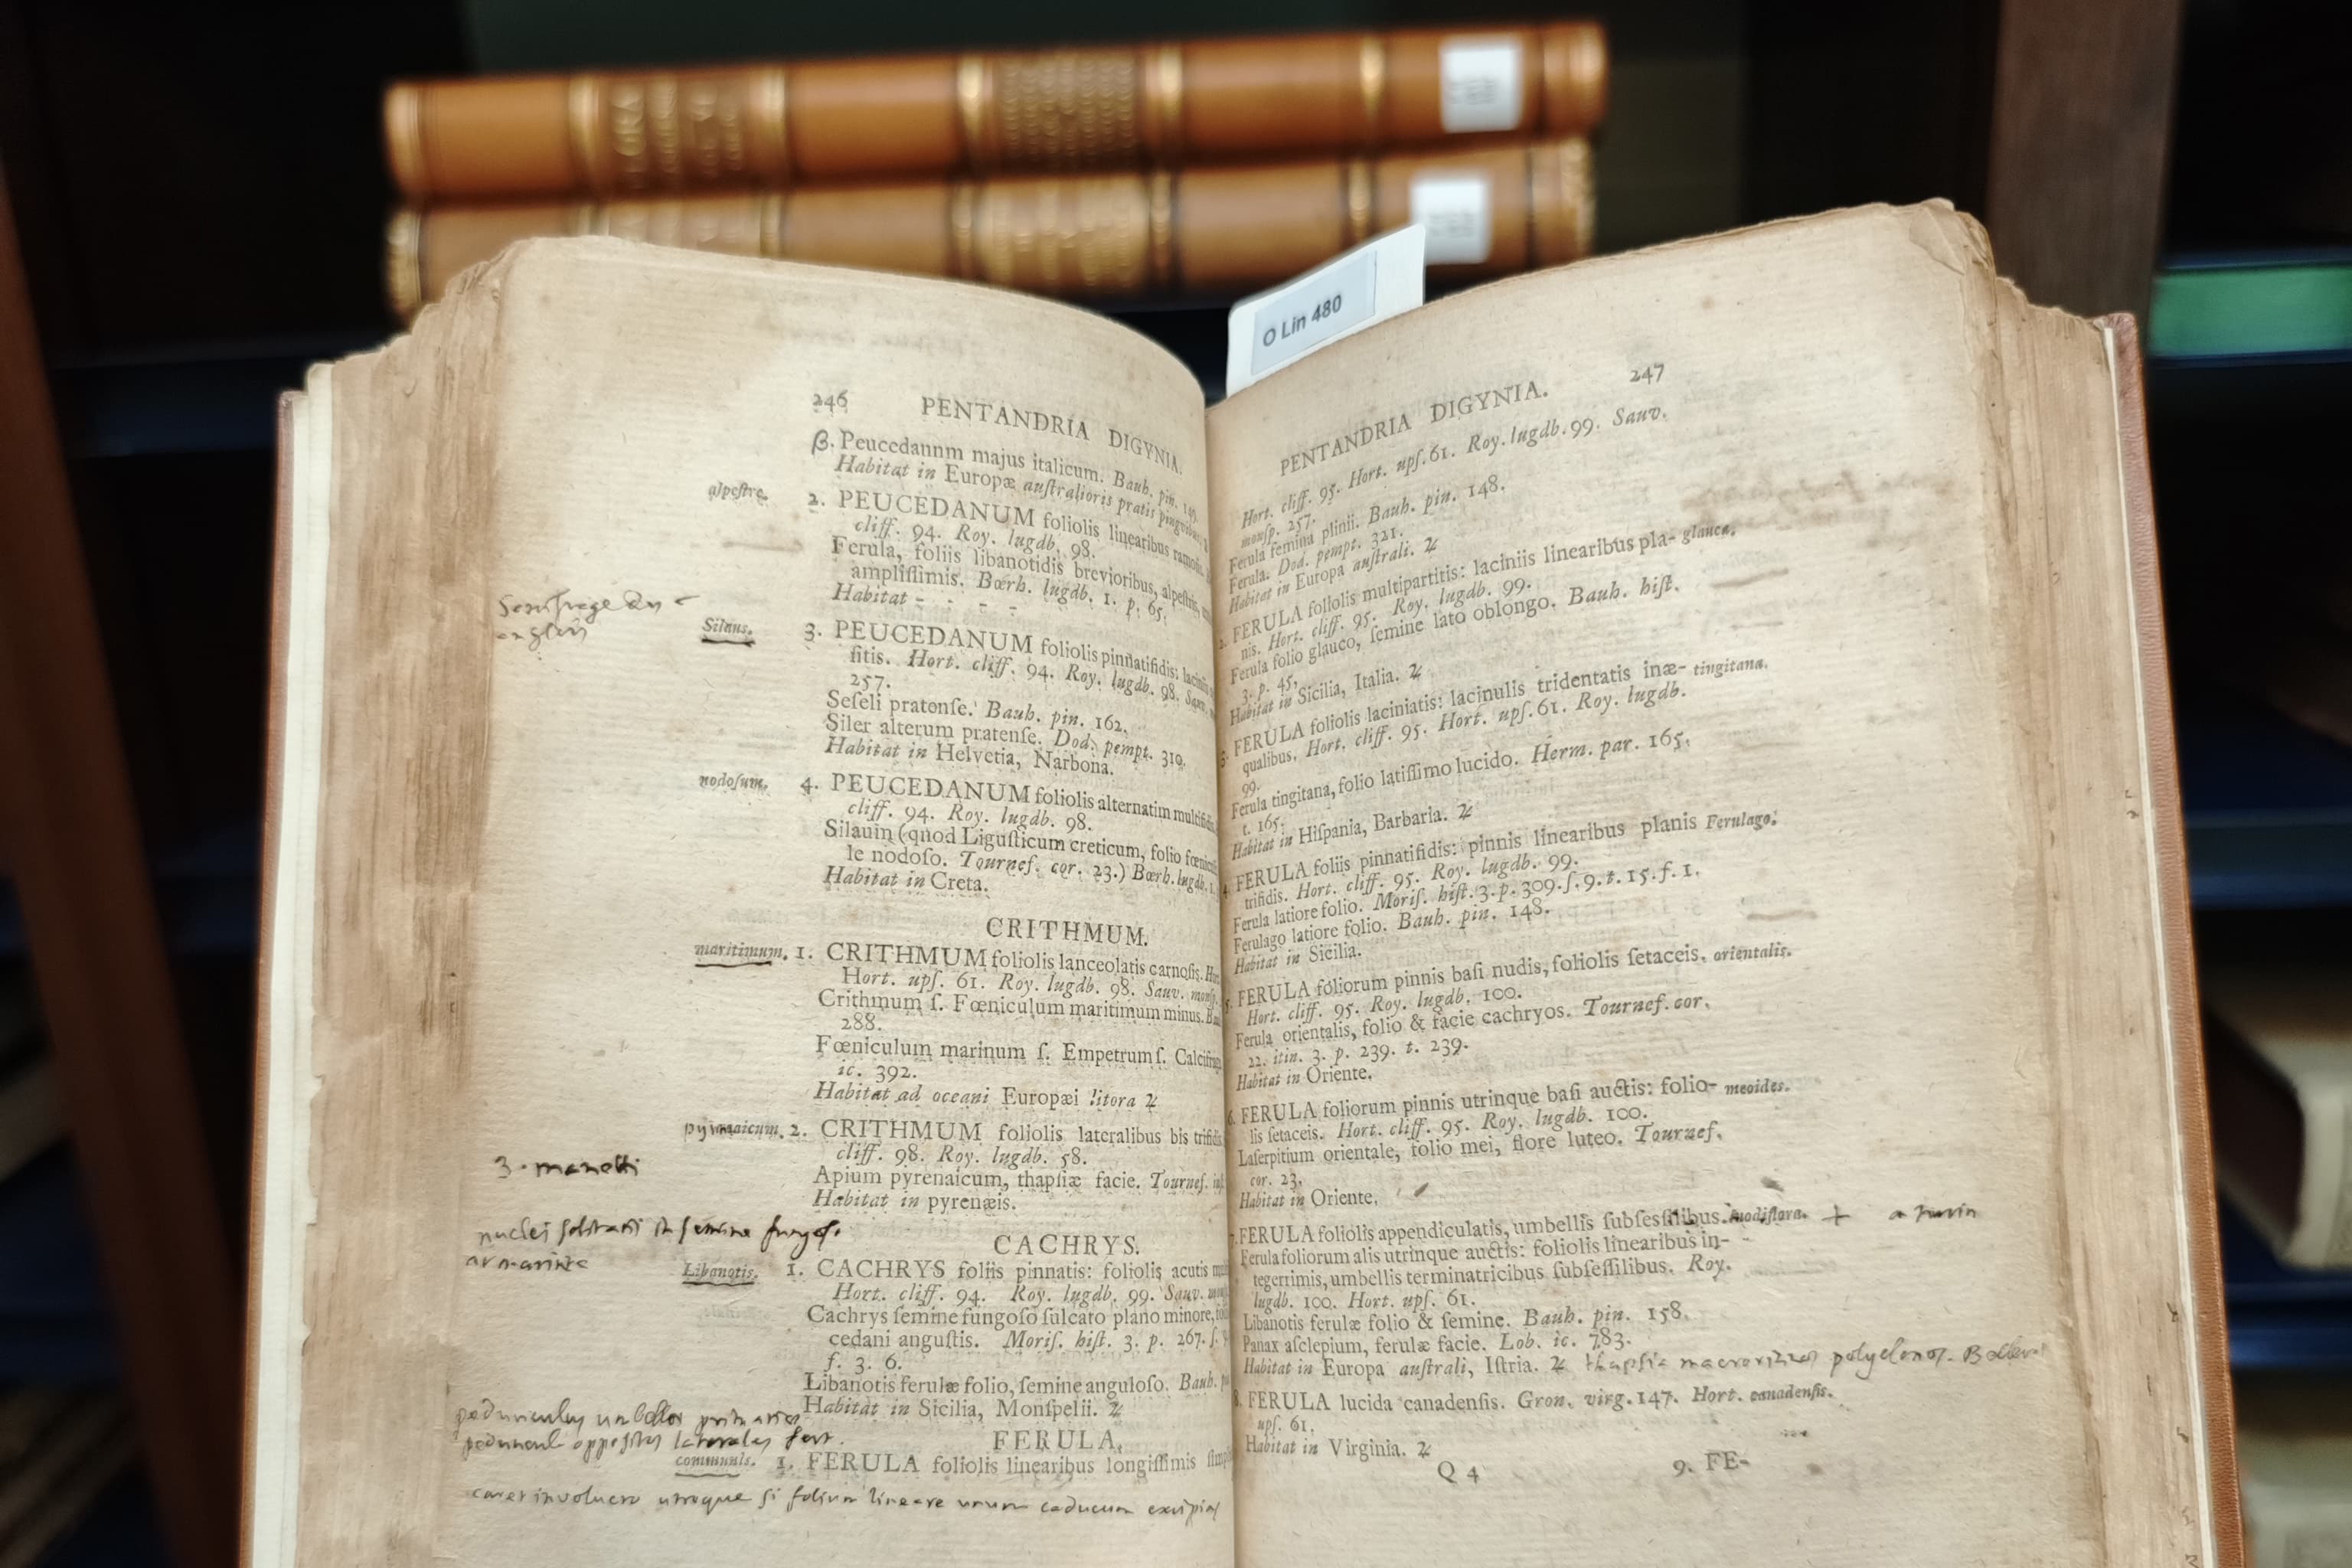 O Lin 480
246 PENTANDRIA DIGYNIA.
β. Peucedannm majus italicum. Bauh. pin. 149.
Habitat in Europæ australioris pratis pinguibus.
alpestre. 2. PEUCEDANUM foliolis linearibus ramosis.
cliff. 94. Roy. lugdb. 98.
Ferula, foliis libanotidis brevioribus, alpestris,
amplissimis. Bœrh. lugdb. 1. p. 65.
Habitat - - - -
Silaus. 3. PEUCEDANUM foliolis pinnatifidis: laciniis
sitis. Hort. cliff. 94. Roy. lugdb. 98.
257.
Seseli pratense. Bauh. pin. 162.
Siler alterum pratense. Dod. pempt. 310.
Habitat in Helvetia, Narbona.
nodosum. 4. PEUCEDANUM foliolis alternatim multifidis.
cliff. 94. Roy. lugdb. 98.
Silaum (quod Ligusticum creticum, folio fœniculi
le nodoso. Tournef. cor. 23.) Bœrh. lugdb. 1.
Habitat in Creta.
CRITHMUM.
maritimum. 1. CRITHMUM foliolis lanceolatis carnosis.
Hort. ups. 61. Roy. lugdb. 98. Sauv. monsp.
Crithmum ſ. Fœniculum maritimum minus.
288.
Fœniculum marinum ſ. Empetrum ſ. Calcifraga
ic. 392.
Habitat ad oceani Europæi litora ♃
pyrenaicum. 2. CRITHMUM foliolis lateralibus bis trifidis.
cliff. 98. Roy. lugdb. 58.
3. manetti
Apium pyrenaicum, thapsiæ facie. Tournef.
Habitat in pyrenæis.
nuclei solitarii in semine fungoso.
CACHRYS.
armarinte
Libanotis. 1. CACHRYS foliis pinnatis: foliolis acutis
Hort. cliff. 94. Roy. lugdb. 99. Sauv.
Cachrys semine fungoso sulcato plano minore,
cedani angustis. Moris. hist. 3. p. 267.
f. 3. 6.
Libanotis ferulæ folio, semine anguloso. Bauh.
Habitat in Sicilia, Monspelii. ♃
pedunculus umbellæ primariæ
pedunculos oppositos laterales fert.
FERULA.
communis. 1. FERULA foliolis linearibus longissimis
caret involucro utroque si folium lineare unum caducum excipias
PENTANDRIA DIGYNIA. 247
Hort. cliff. 95. Hort. ups. 61. Roy. lugdb. 99. Sauv.
monsp. 257.
Ferula femina plinii. Bauh. pin. 148.
Ferula. Dod. pempt. 321.
Habitat in Europa australi. ♃
2. FERULA foliolis multipartitis: laciniis linearibus pla- glauca.
nis. Hort. cliff. 95. Roy. lugdb. 99.
Ferula folio glauco, semine lato oblongo. Bauh. hist.
3. p. 45.
Habitat in Sicilia, Italia. ♃
3. FERULA foliolis laciniatis: lacinulis tridentatis inæ- tingitana.
qualibus. Hort. cliff. 95. Hort. ups. 61. Roy. lugdb.
99.
Ferula tingitana, folio latissimo lucido. Herm. par. 165.
t. 165.
Habitat in Hispania, Barbaria. ♃
4. FERULA foliis pinnatifidis: pinnis linearibus planis Ferulago.
trifidis. Hort. cliff. 95. Roy. lugdb. 99.
Ferula latiore folio. Moris. hist. 3. p. 309. ſ. 9. t. 15. f. 1.
Ferulago latiore folio. Bauh. pin. 148.
Habitat in Sicilia.
5. FERULA foliorum pinnis basi nudis, foliolis setaceis. orientalis.
Hort. cliff. 95. Roy. lugdb. 100.
Ferula orientalis, folio & facie cachryos. Tournef. cor.
22. itin. 3. p. 239. t. 239.
Habitat in Oriente.
6. FERULA foliorum pinnis utrinque basi auctis: folio- meoides.
lis setaceis. Hort. cliff. 95. Roy. lugdb. 100.
Laserpitium orientale, folio mei, flore luteo. Tournef.
cor. 23.
Habitat in Oriente.
7. FERULA foliolis appendiculatis, umbellis subsessilibus. nodiflora. + a turin
Ferula foliorum alis utrinque auctis: foliolis linearibus in-
tegerrimis, umbellis terminatricibus subsessilibus. Roy.
lugdb. 100. Hort. ups. 61.
Libanotis ferulæ folio & semine. Bauh. pin. 158.
Panax asclepium, ferulæ facie. Lob. ic. 783.
Habitat in Europa australi, Istria. ♃ thapsia
8. FERULA lucida canadensis. Gron. virg. 147. Hort. canadensis.
ups. 61.
Habitat in Virginia. ♃
Q 4 9. FE-